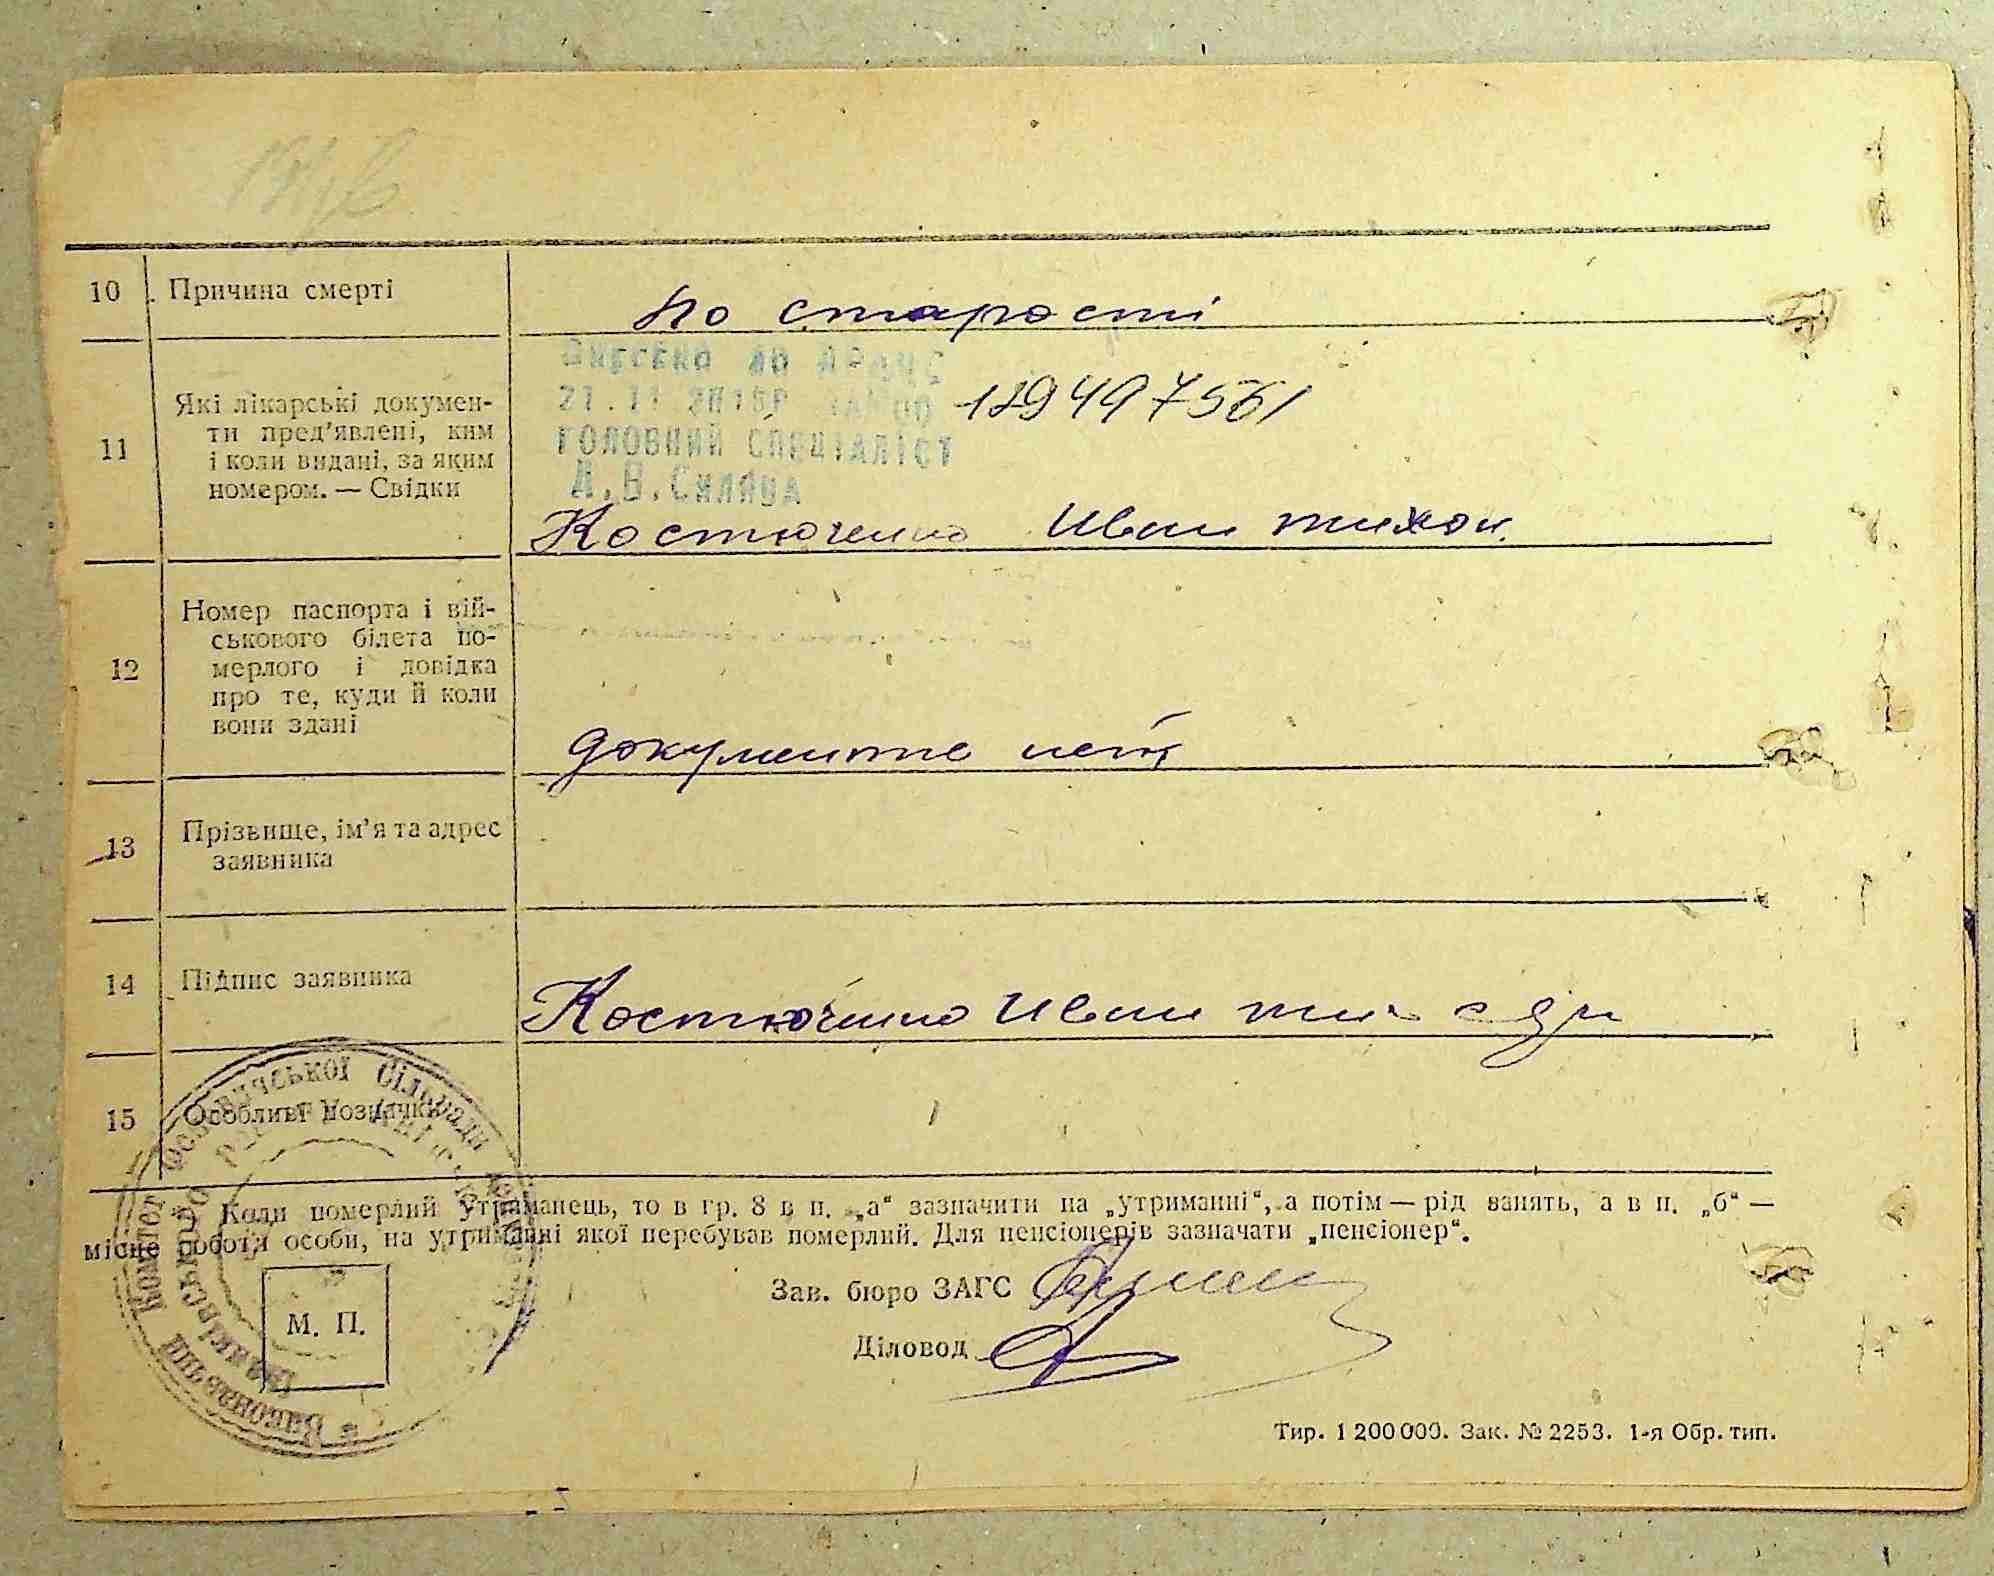 10 Причина смерті
по старості
Внесено до ДРАЦС
21.11.2018р
189497561
ГОЛОВНИЙ СПЕЦІАЛІСТ
11 Які лікарські докумен-
ти пред'явлені, ким
і коли видані, за яким
номером. — Свідки
Костюченко Иван тихон.
12 Номер паспорта і вій-
ськового білета по-
мерлого і довідка
про те, куди й коли
вони здані
документе нет
13 Прізвище, ім'я та адрес
заявника
14 Підпис заявника
Костюченко Иван
15 Особливі позначки
Виконавчий Комітет Сілоради
Коли померлий утриманець, то в гр. 8 в п. „а“ зазначити на „утриманні“, а потім — рід занять, а в п. „б“ —
місце роботи особи, на утриманні якої перебував померлий. Для пенсіонерів зазначати „пенсіонер“.
Зав. бюро ЗАГС
М. П.
Діловод
Тир. 1 200 000. Зак. № 2253. 1-я Обр. тип.